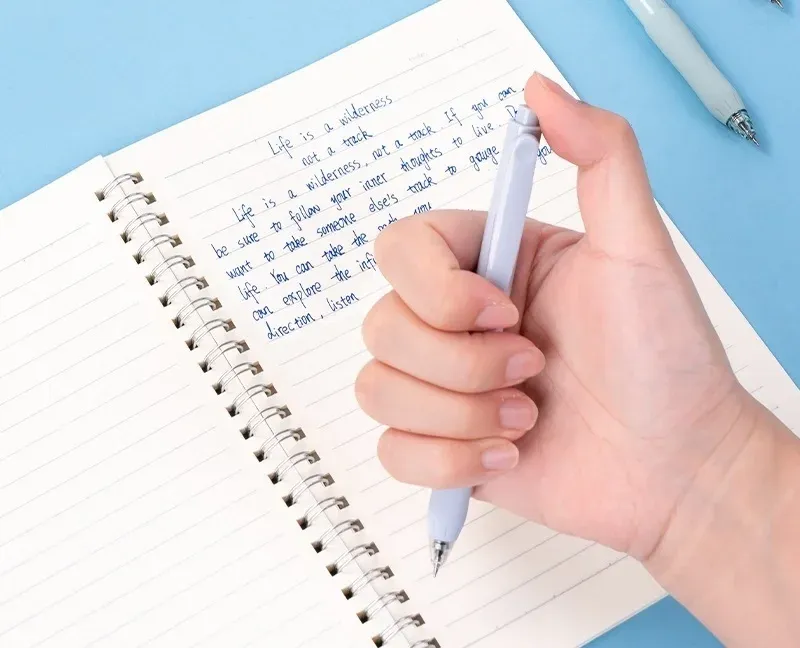 Life is a wilderness
not a track
Life is a wilderness, not a track. If you can
be sure to follow your inner thoughts to live.
want to take someone else's track to grauge you
life. You can take the you
can explore the inf
direction, listen